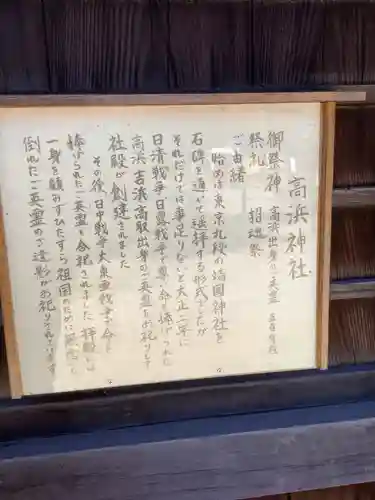 高浜神社
御祭神 高浜出身のご英霊
祭礼 招魂祭
ご由緒
始めは東京九段の靖国神社を
石碑を通して遥拝する形式でしたが
それだけでは事足りないと大正二年に
日清戦争・日露戦争で尊い命を捧げられた
高浜・吉浜・高取出身のご英霊をお祀りして
社殿が創建されました
その後日中戦争・大東亜戦争で命を
捧げられたご英霊も合祀されました 拝殿には
一身を顧みずひたすら祖国のために
倒れたご英霊のご遺影がお祀りされています